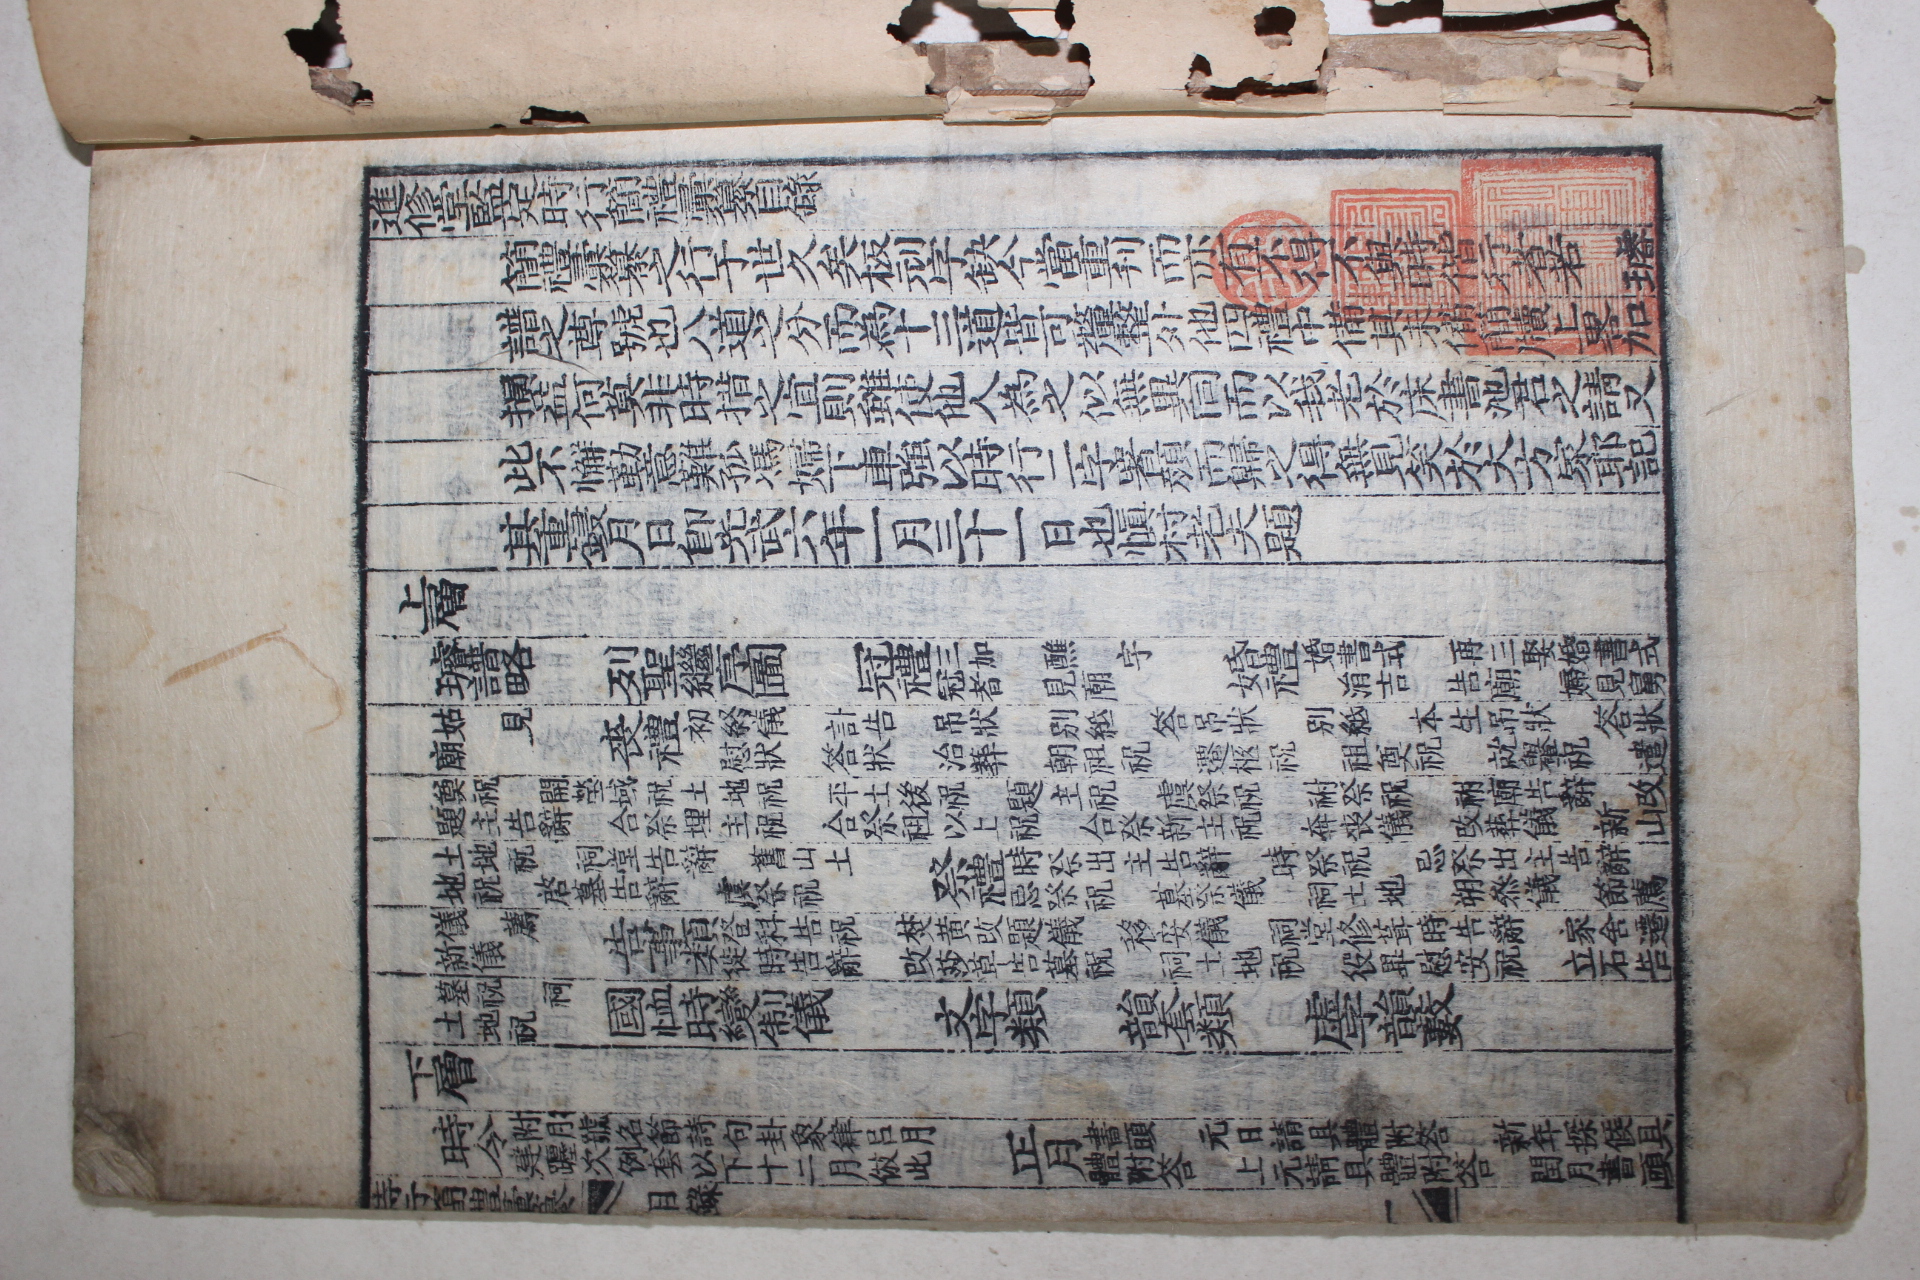 進修堂監定時行簡禮彙纂目錄
簡禮彙纂之行于世久矣板刓字缺今當重刊而亦有不得不與時偕行者若 璿
譜之尊號也八道之分而為十三道皆可釐整外他四禮中備其未備簡牘上畧加
損益何莫非時措之宜則雖使他人為之似無異同而以我老於床書池君之請又
此不懈勤意難孤馮婦下車強以時行二字署顔而歸之得無見笑於大方家耶記
其重鋟月日卽光武六年一月三十一日也愼村老夫題
上層
璿譜略 列聖繼序圖 冠禮 三加 醮 字 冠者 見廟 婚禮 婚書式 再三娶婚書式 涓吉 告廟 婦見舅
姑 見廟 喪禮 初終儀 訃告 吊狀 別紙 答吊狀 別紙 本生吊狀 答狀 慰狀 答狀 治葬 朝祖祝 遷柩祝 祖奠祝 就轝祝 遣
奠祝 開塋域祝 土地祝 平土後祝 題主祝 虞祭祝 祔祭祝 祔廟告辭 改
題主告辭 合祭埋主祝 合祭祖以上祝 合祭新主祝 奔喪儀 改葬儀 新山
土地祝 祠堂告辭 舊山土地祝 啓墓告辭 虞祭祝 祭禮 時祭出主告辭 時祭祝 忌祭出主告辭 忌祭祝 墓祭儀 祠土地 朔叅儀 節薦
儀 薦新儀 告事類 登科告祝 焚黃改題儀 移安儀 祠堂修葺時告辭 家舍遷徙時告辭 改莎草告墓祝 祠土地祝 役畢慰安祝 立石告
墓祝 祠土地祝 國恤時變制儀 文字類 韻套類 虛字韻藪
下層
時令 附月號名節詩句卦象律呂月建躔次例套以下十二月倣此 正月 書頭 元日請具體附答 新年探候具體附答 上元請具體附答 閏月書頭
時行簡禮彙纂 目錄 一